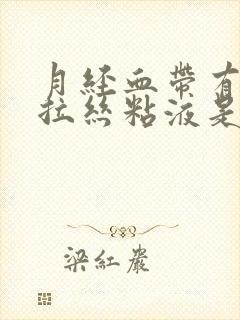 月経血帶有
拉絲粘液是
梁紅巖